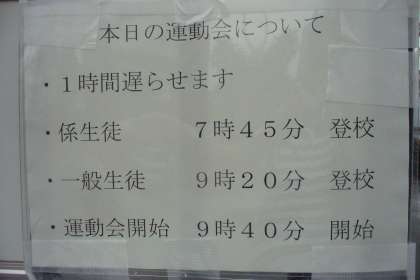 本日の運動会について
・１時間遅らせます
・係生徒　７時４５分　登校
・一般生徒　９時２０分　登校
・運動会開始　９時４０分　開始